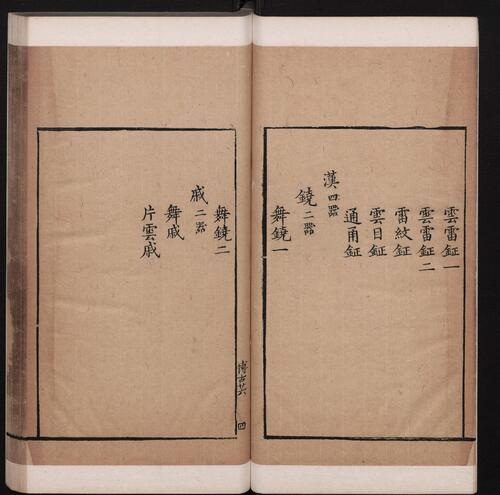 雲雷鉦一
雲雷鉦二
雷紋鉦
雲目鉦
通甬鉦
漢四器
鐃二器
舞鐃一
博古廿六 四
舞鐃二
戚二器
舞戚
片雲戚